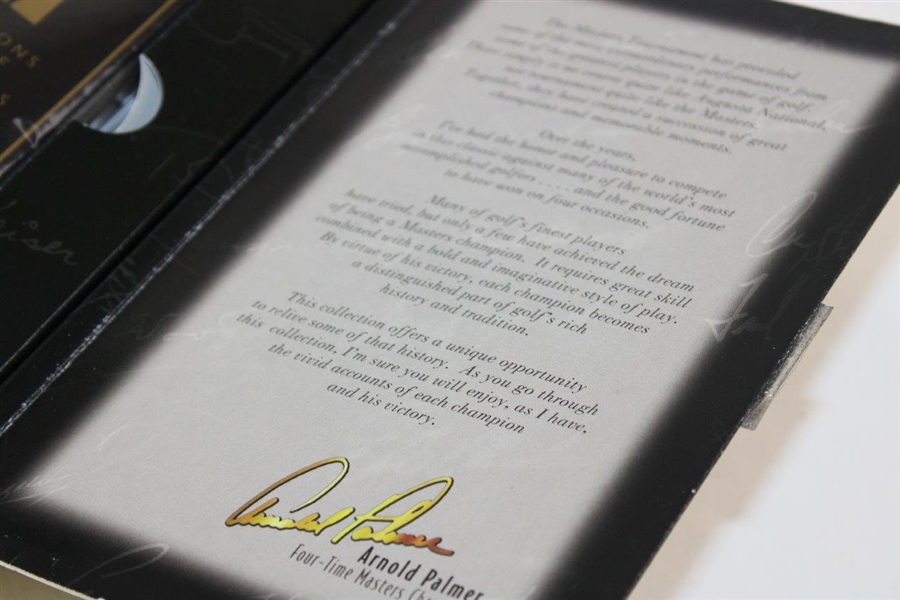 ONS
The Masters Tournament has provided
some of the most extraordinary performances from
some of the greatest players in the game of golf.
There simply is no course quite like Augusta National,
nor tournament quite like the Masters.
Together, they have created a succession of great
champions and memorable moments.
Over the years,
I've had the honor and pleasure to compete
in this classic against many of the world's most
accomplished golfers . . . . and the good fortune
to have won on four occasions.
Many of golf's finest players
have tried, but only a few have achieved the dream
of being a Masters champion. It requires great skill
combined with a bold and imaginative style of play.
By virtue of his victory, each champion becomes
a distinguished part of golf's rich
history and tradition.
This collection offers a unique opportunity
to relive some of that history. As you go through
this collection, I'm sure you will enjoy, as I have,
the vivid accounts of each champion
and his victory.
Arnold Palmer
Arnold Palmer
Four-Time Masters Cha